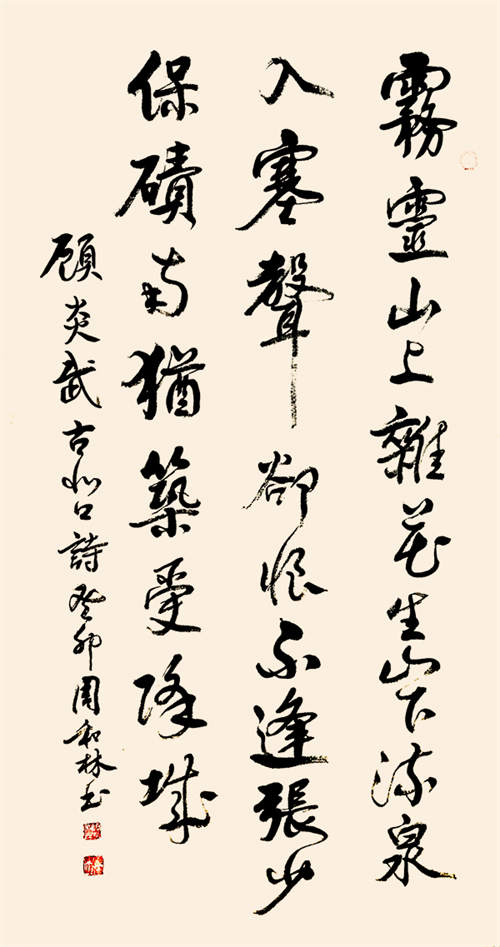 霧靈山上雜花生山下流泉
入塞聲卻恨不逢張少
保磧南猶築受降城
顧炎武古北口詩癸卯周和林书